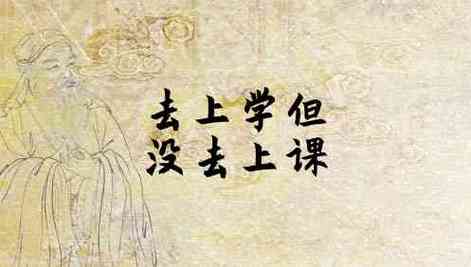 去上学但
没去上课